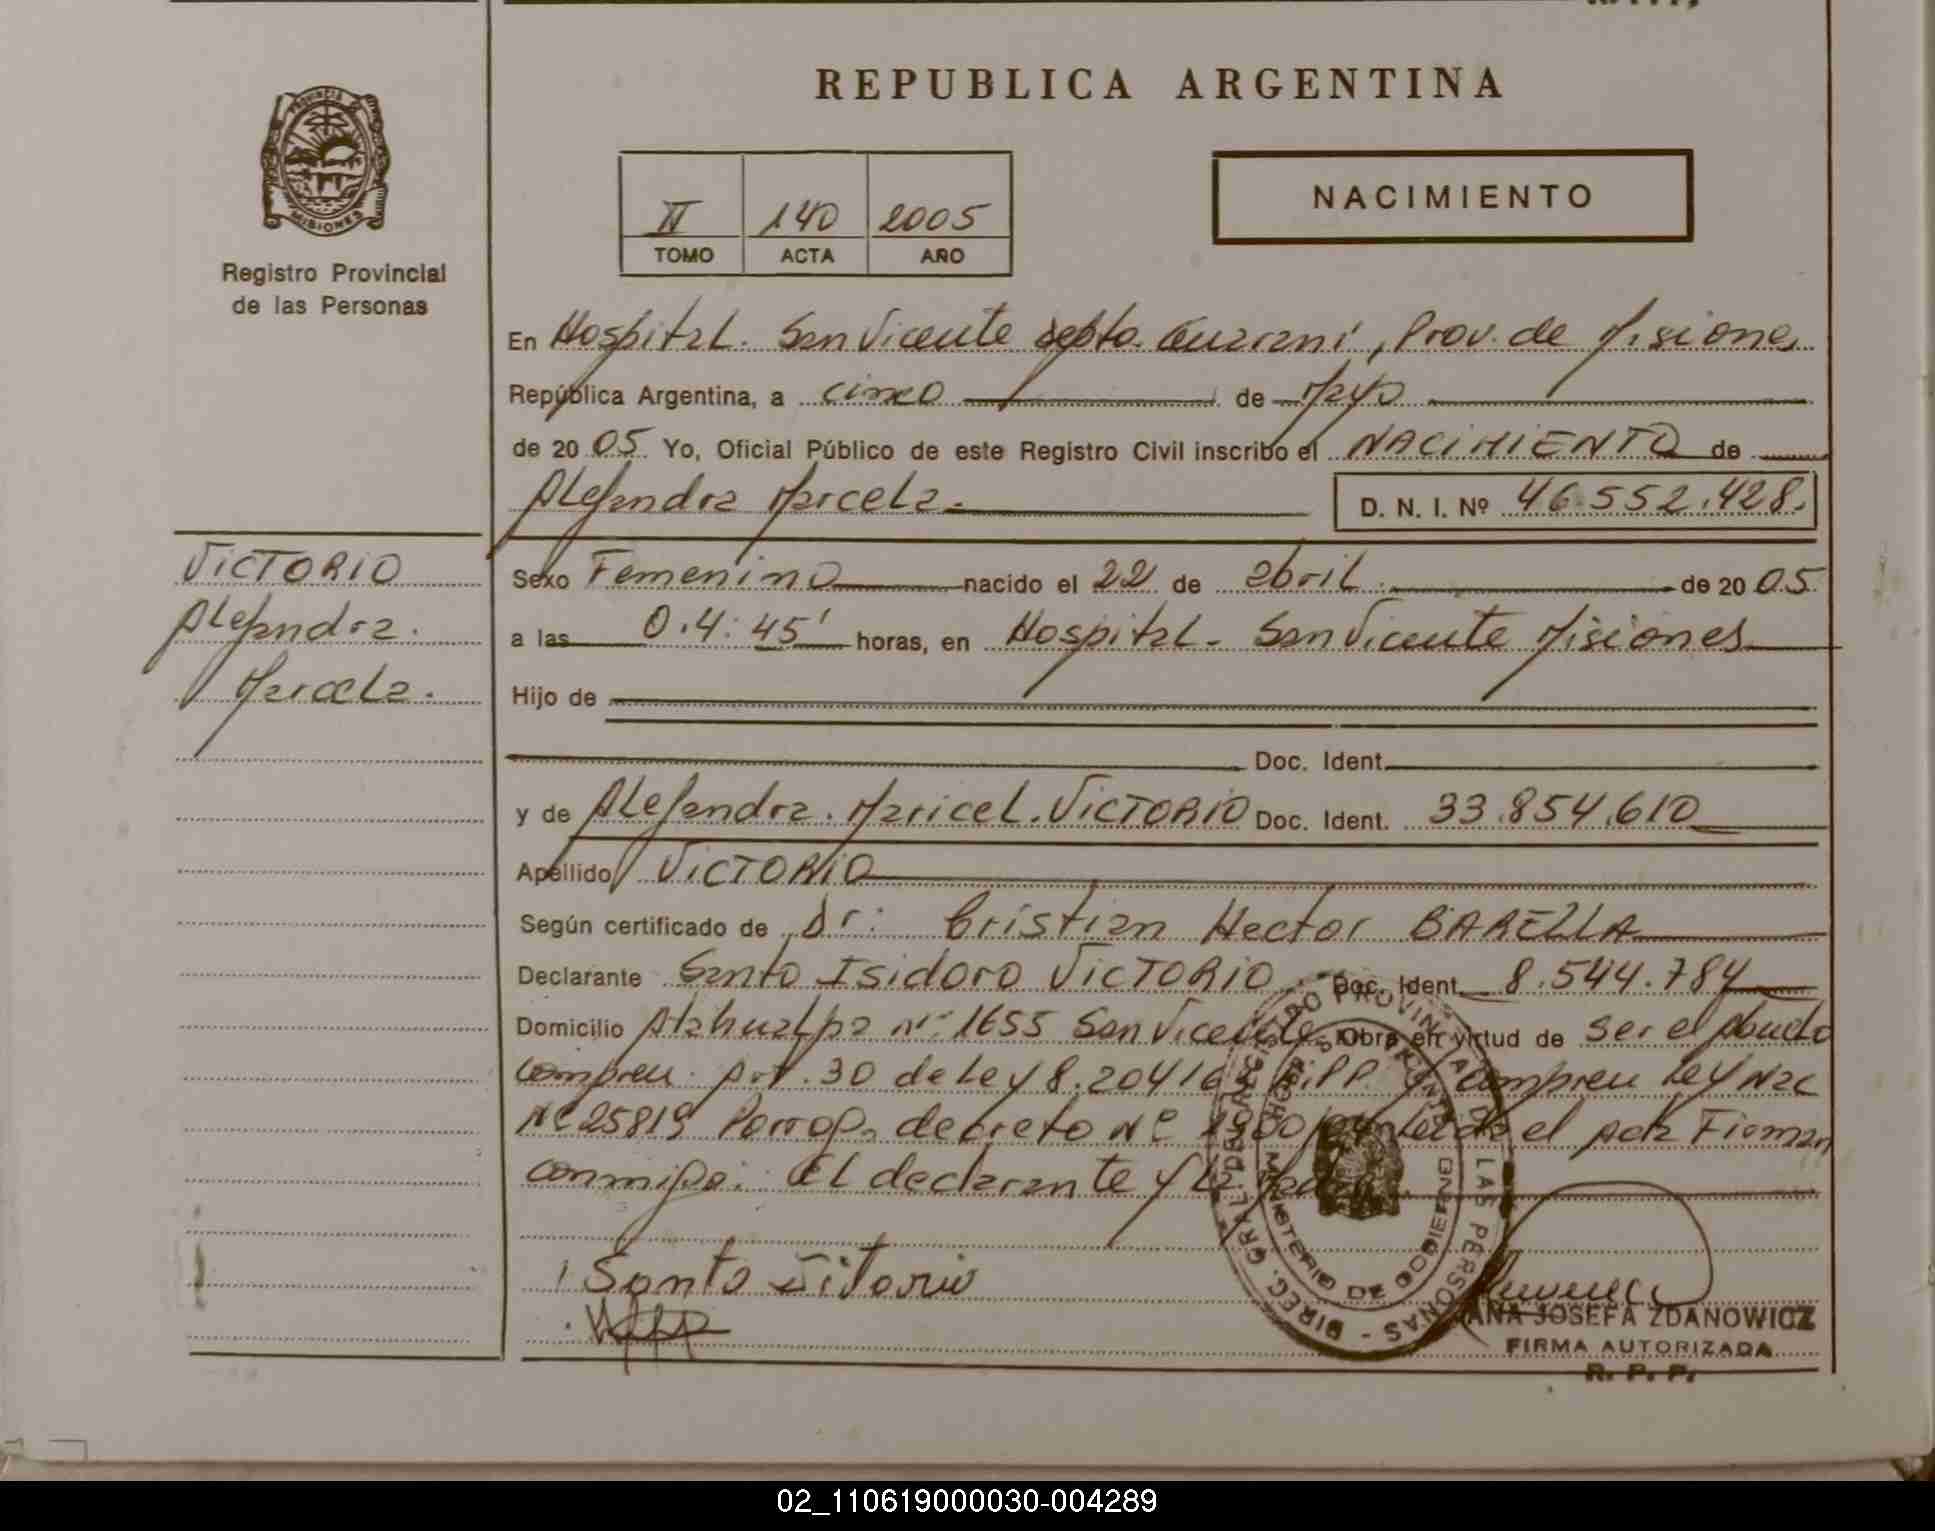 REPUBLICA ARGENTINA
PROVINCIA DE MISIONES
Registro Provincial
de las Personas
II 140 2005
TOMO ACTA AÑO
NACIMIENTO
En Hospital. San Vicente depto. Guaraní, Prov. de Misiones
República Argentina, a cinco de Mayo
de 20 05. Yo, Oficial Público de este Registro Civil inscribo el NACIMIENTO de
Alejandra Marcela. D. N. I. Nº 46.552.428.
VICTORIO
Alejandra.
Marcela.
Sexo Femenino nacido el 22 de abril. de 20 05.
a las 0.4:45' horas, en Hospital - San Vicente Misiones
Hijo de
Doc. Ident.
y de Alejandra. Maricel. VICTORIO Doc. Ident. 33.854.610
Apellido VICTORIO
Según certificado de Dr: Cristian Hector BARELLA
Declarante Santo Isidoro VICTORIO. Doc. Ident. 8.544.784
Domicilio Atahualpa Nº 1655 San Vicente Obra en virtud de ser el Abuelo
Art. 30 de Ley 8.204/63 Ley Nac
Nº 25819 decreto Nº el acta Firman
conmigo: El declarante y la Madre.
Santo Vitorio
DIREC. GRAL. DEL REGISTRO PROVINCIAL DE LAS PERSONAS
MINISTERIO DE GOBIERNO
ANA JOSEFA ZDANOWICZ
FIRMA AUTORIZADA
R. P. P.
02_110619000030-004289